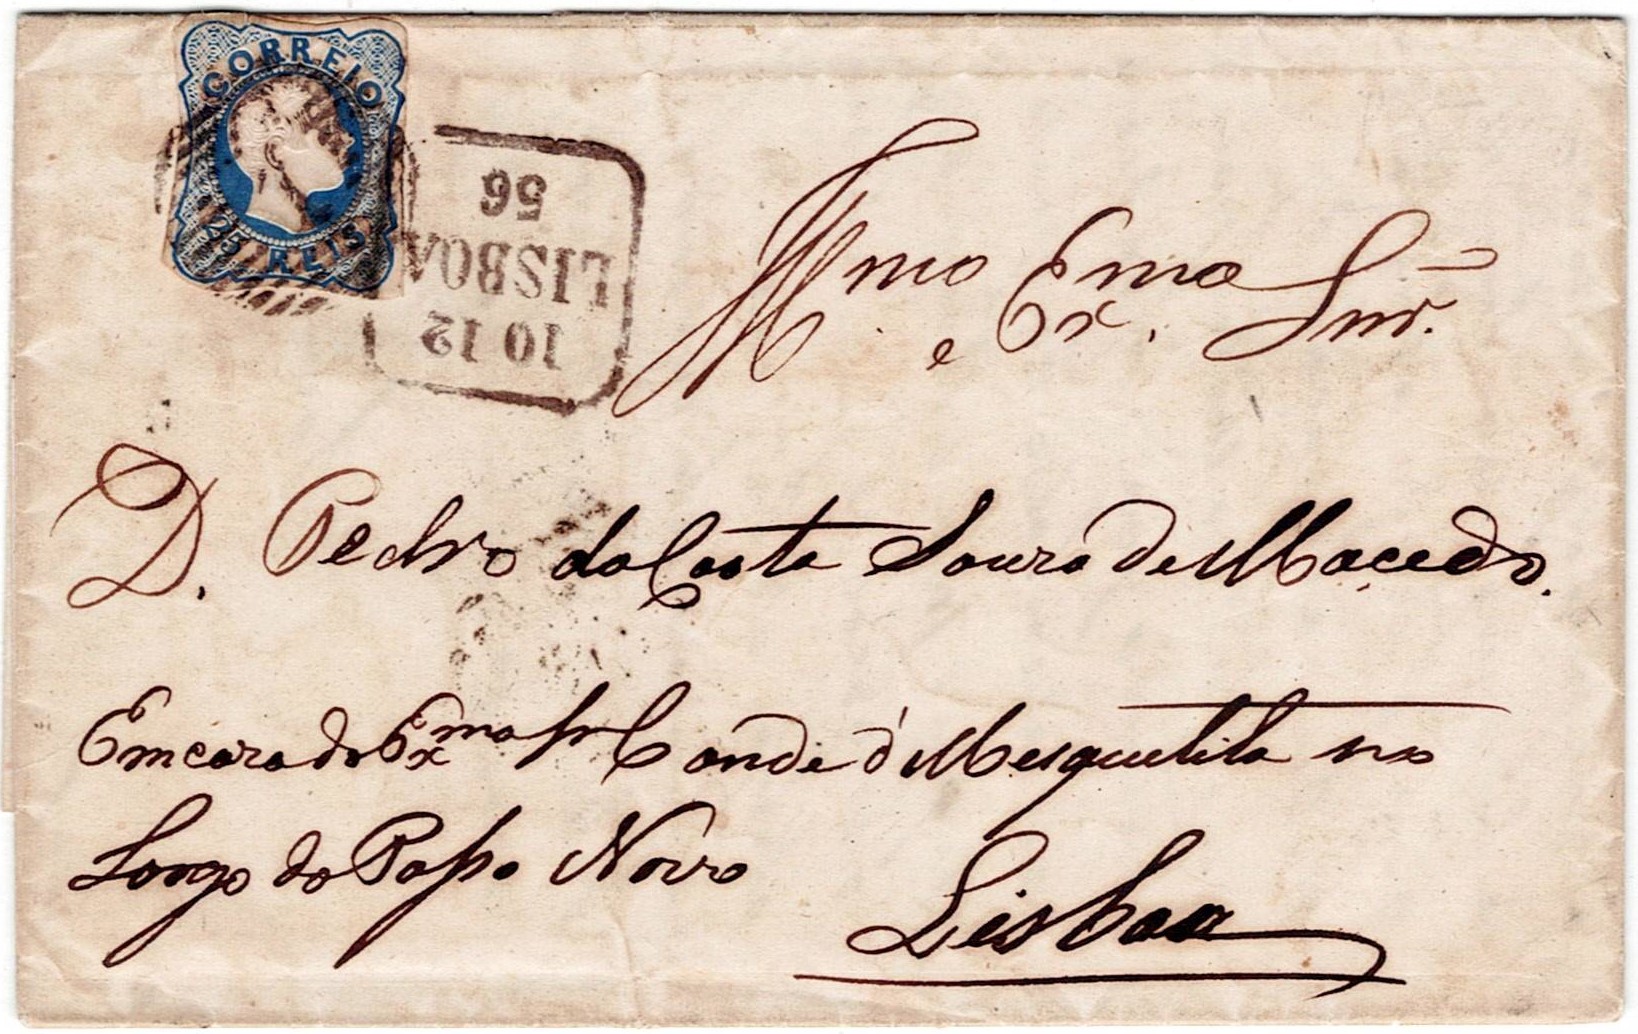 CORREIO
25 REIS
56
LISBOA
10 12
Illmo e Exmo Snr.
D. Pedro da Costa Souza de Macedo.
Em caza do Exmo Snr Conde d' Mesquitela no
Largo do Passo Novo
Lisboa